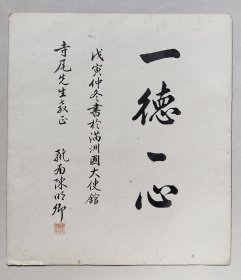 一徳一心
戊寅仲冬書於满洲國大使館
寺尾先生教正
陳明卿